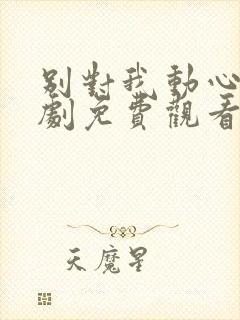 別對我動心
劇免費觀看
天魔星